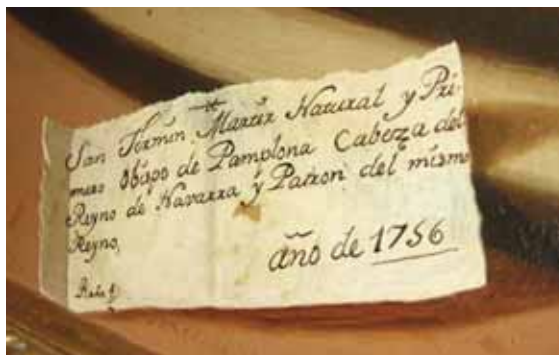 San Fermin Martir Natural y Pri-
mero Obispo de Pamplona Cabeza del
Reyno de Navarra ÿ Patron del mismo
Reyno,
año de 1756